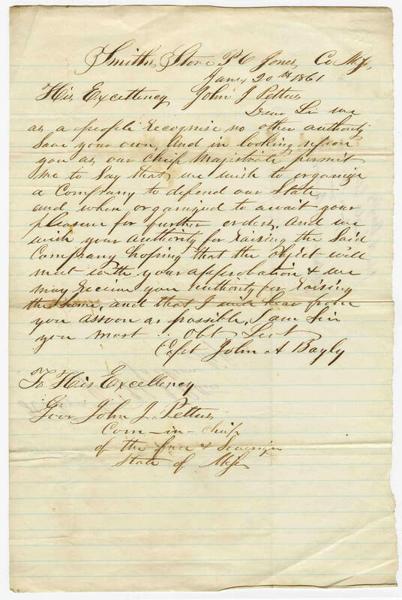 Smiths Store P O Jones Co Miss
Jany 20th 1861
His Excellency John J Pettus
Dear Sir we
as a people recognise no other authority
save your own, and in looking upon
you as our Chief Magistrate permit
me to say that we wish to organize
a Company to defend our State
and when organized to await your
pleasure for further orders, and we
wish your authority for raising the said
Company hoping that the object will
meet with your approbation & we
may receive your authority for raising
the same, and that I will hear from
you assoon as possible, I am Sir
your most Obt Sevt
Capt John A Bayly
To His Excellency
Gov John J. Pettus
Com-in-Chief
of the free & Sovereign
State of Miss